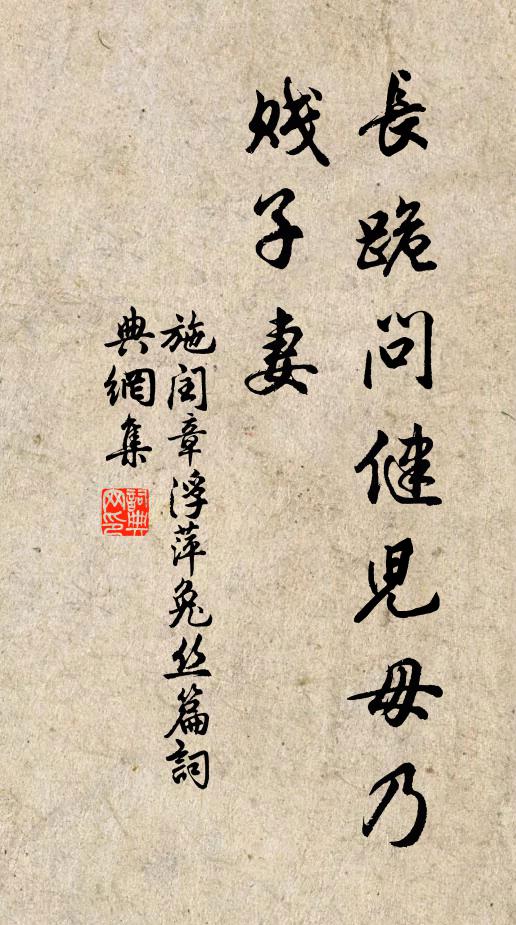 長跪問健児毋乃
賤子妻
施闰章浮萍兔丝篇詞
典網集
詞典
网印